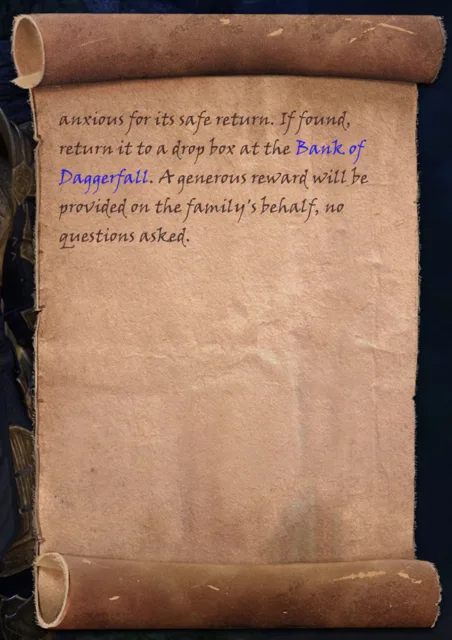 anxious for its safe return. If found,
return it to a drop box at the Bank of
Daggerfall. A generous reward will be
provided on the family's behalf, no
questions asked.